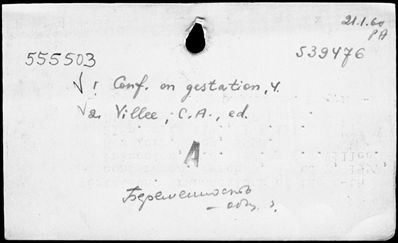 21.1.60
РА
555503
539476
√1 Conf. on gestation, 4.
√2. Villee, C.A., ed.
A
Беременность
— общ.